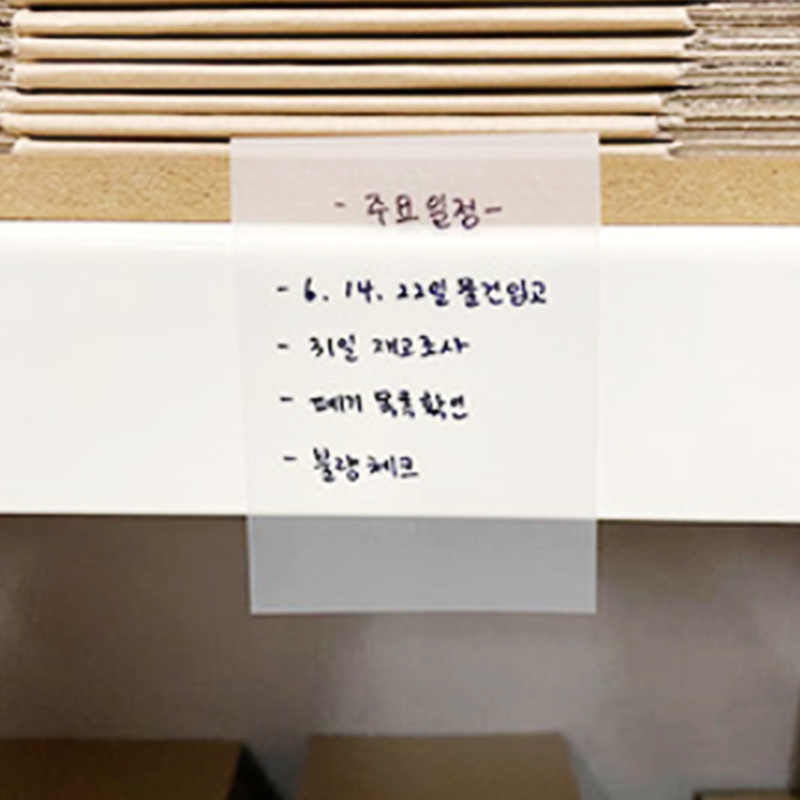 - 주요일정 -
- 6. 14. 22일 물건입고
- 31일 재고조사
- 폐기 목록확인
- 불량체크